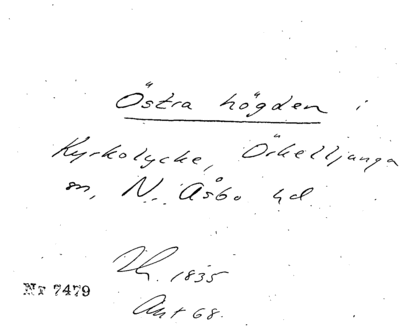 Östra högden i
Kyrkolycke, Örkelljunga
sn, N. Åsbo hd
Lh. 1835
Akt 68.
Nr 7479